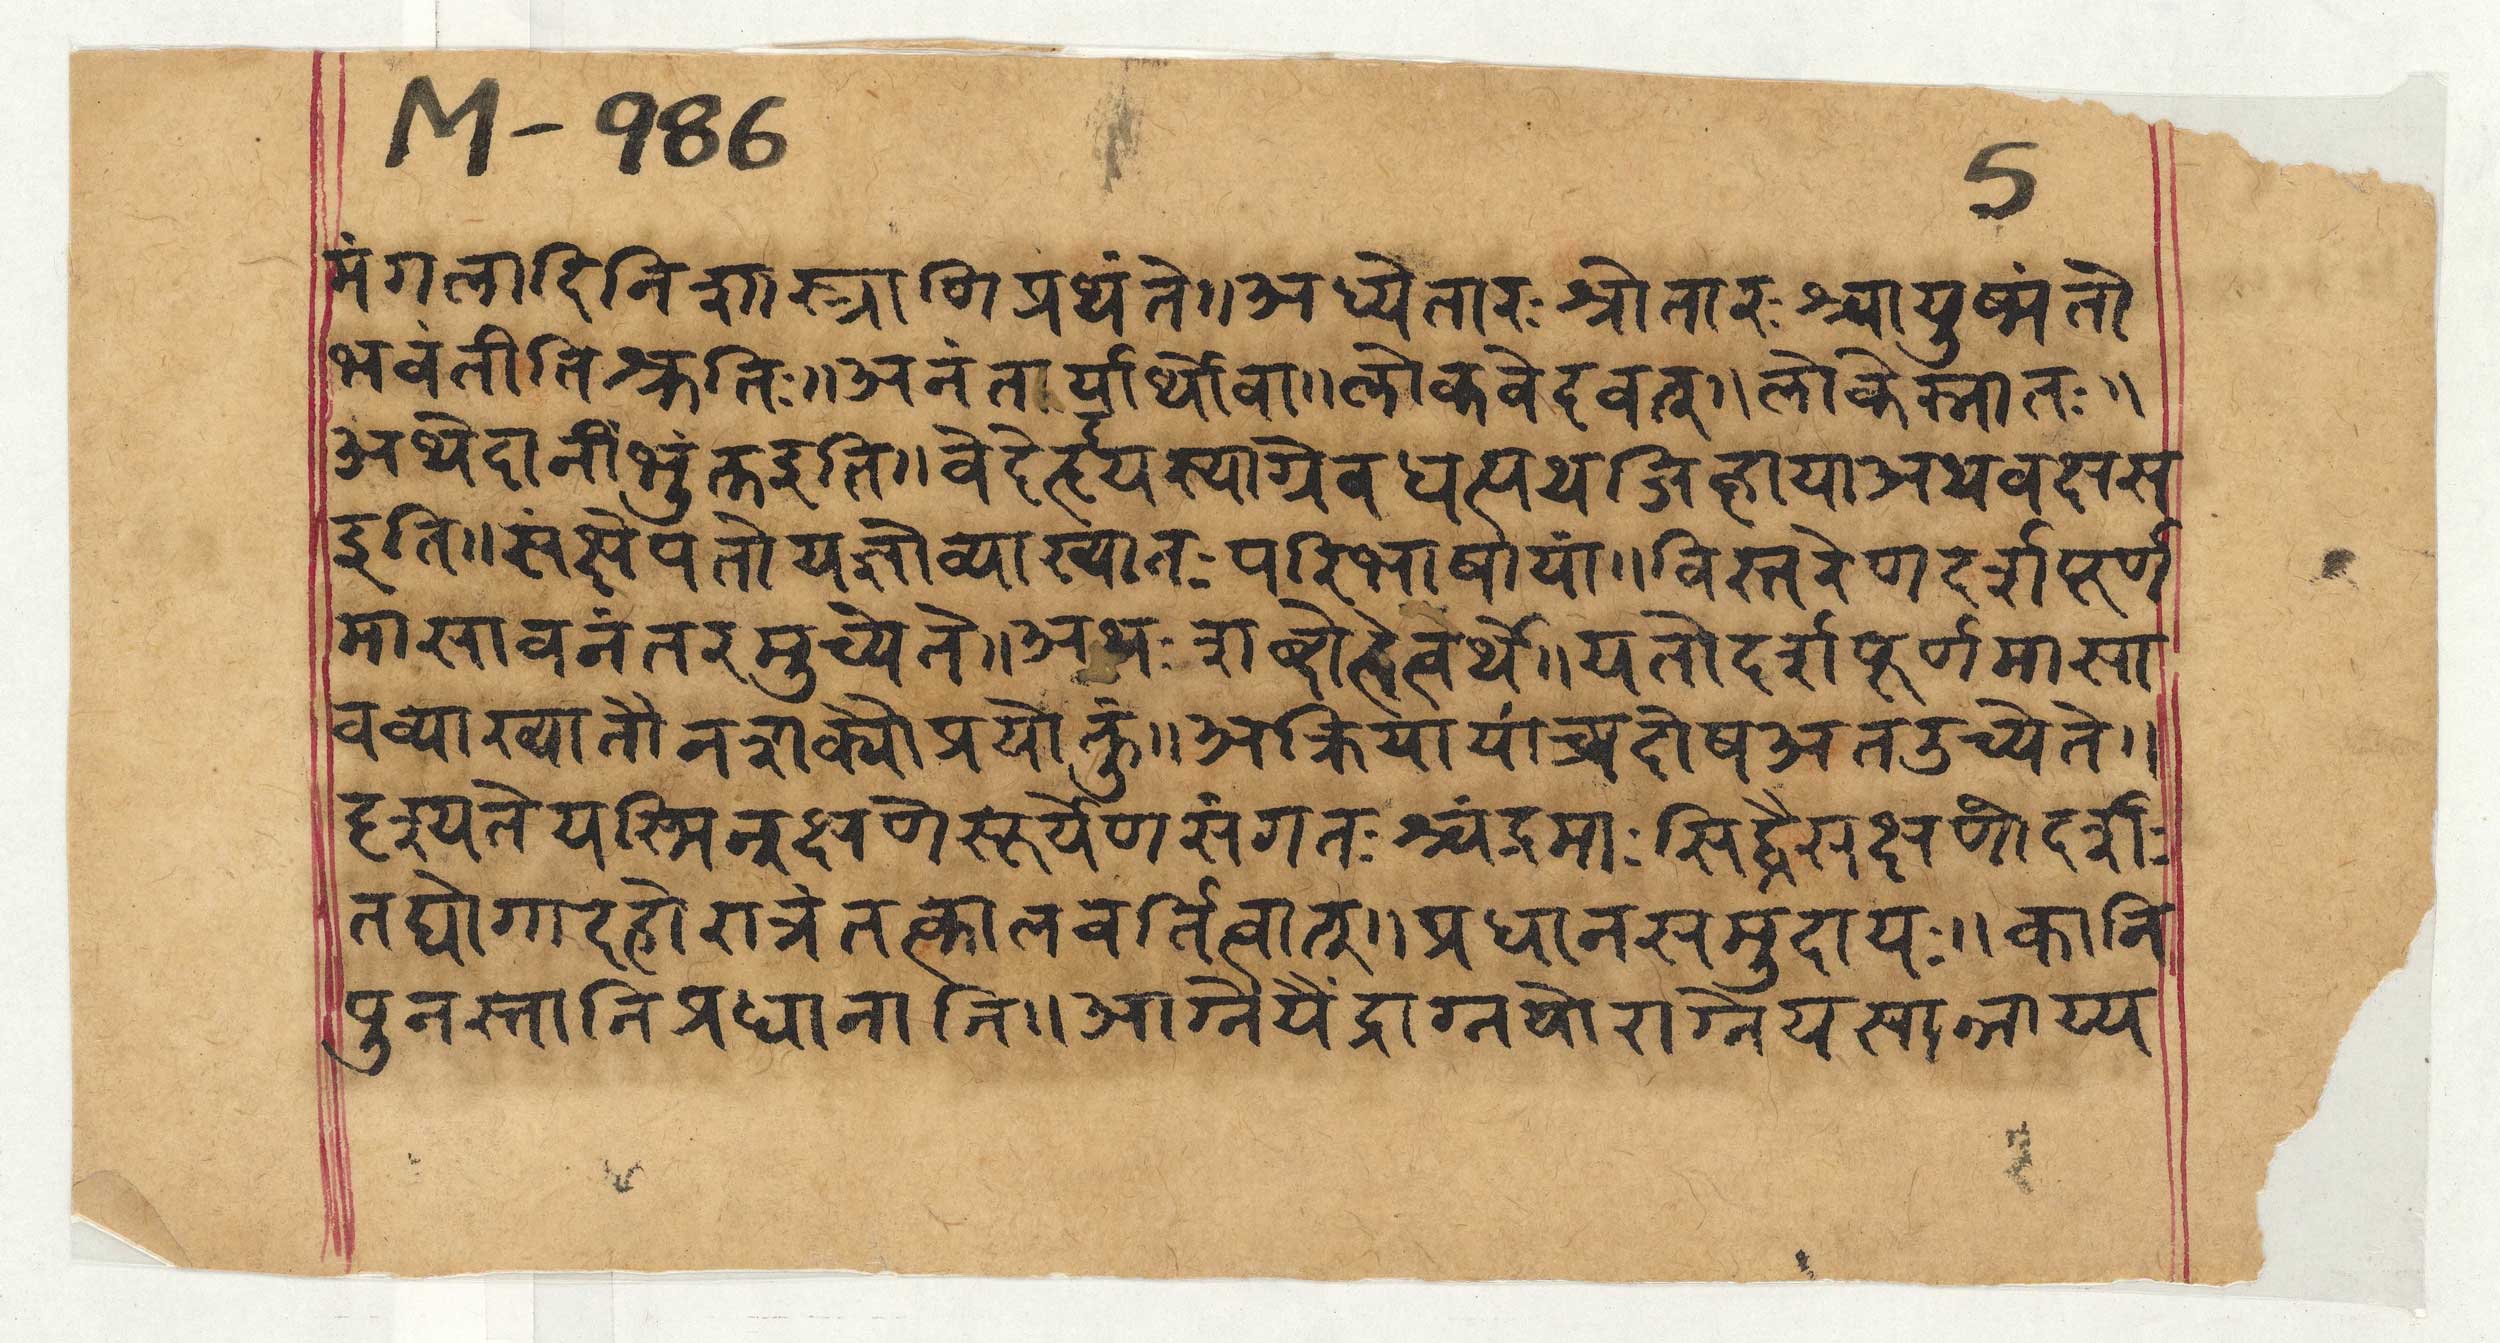 M-986
5
मंगलादिनिशास्त्राणिप्रथंते॥अध्येतारःश्रोतारःश्चायुष्मंतो
भवंतीतिश्रुतिः॥अनंतार्यार्थोवा॥लोकवेदवत्॥लोकेस्नातः॥
अथेदानींभुंक्तइति॥वेदे
इति॥संक्षेपतोयज्ञोव्याख्यातःपरिभाषायां॥विस्तरेणदर्शपूर्ण
मासावनंतरमुच्येते॥अथःशब्दोहेत्वर्थे॥यतोदर्शपूर्णमासा
वव्याख्यातौनशक्यौप्रयोक्तुं॥अक्रियायांच्चदोषअतउच्येते॥
दृश्यतेयस्मिन्क्षणेसूर्येणसंगतःश्चंद्रमाःसिद्धैसक्षणोदर्शः
तद्योगादहोरात्रंतत्कालवर्तित्वात्॥प्रधानसमुदायः॥कानि
पुनस्तानिप्रधानानि॥आग्नेयैंद्राग्नयोराग्नेयसान्नाय्य